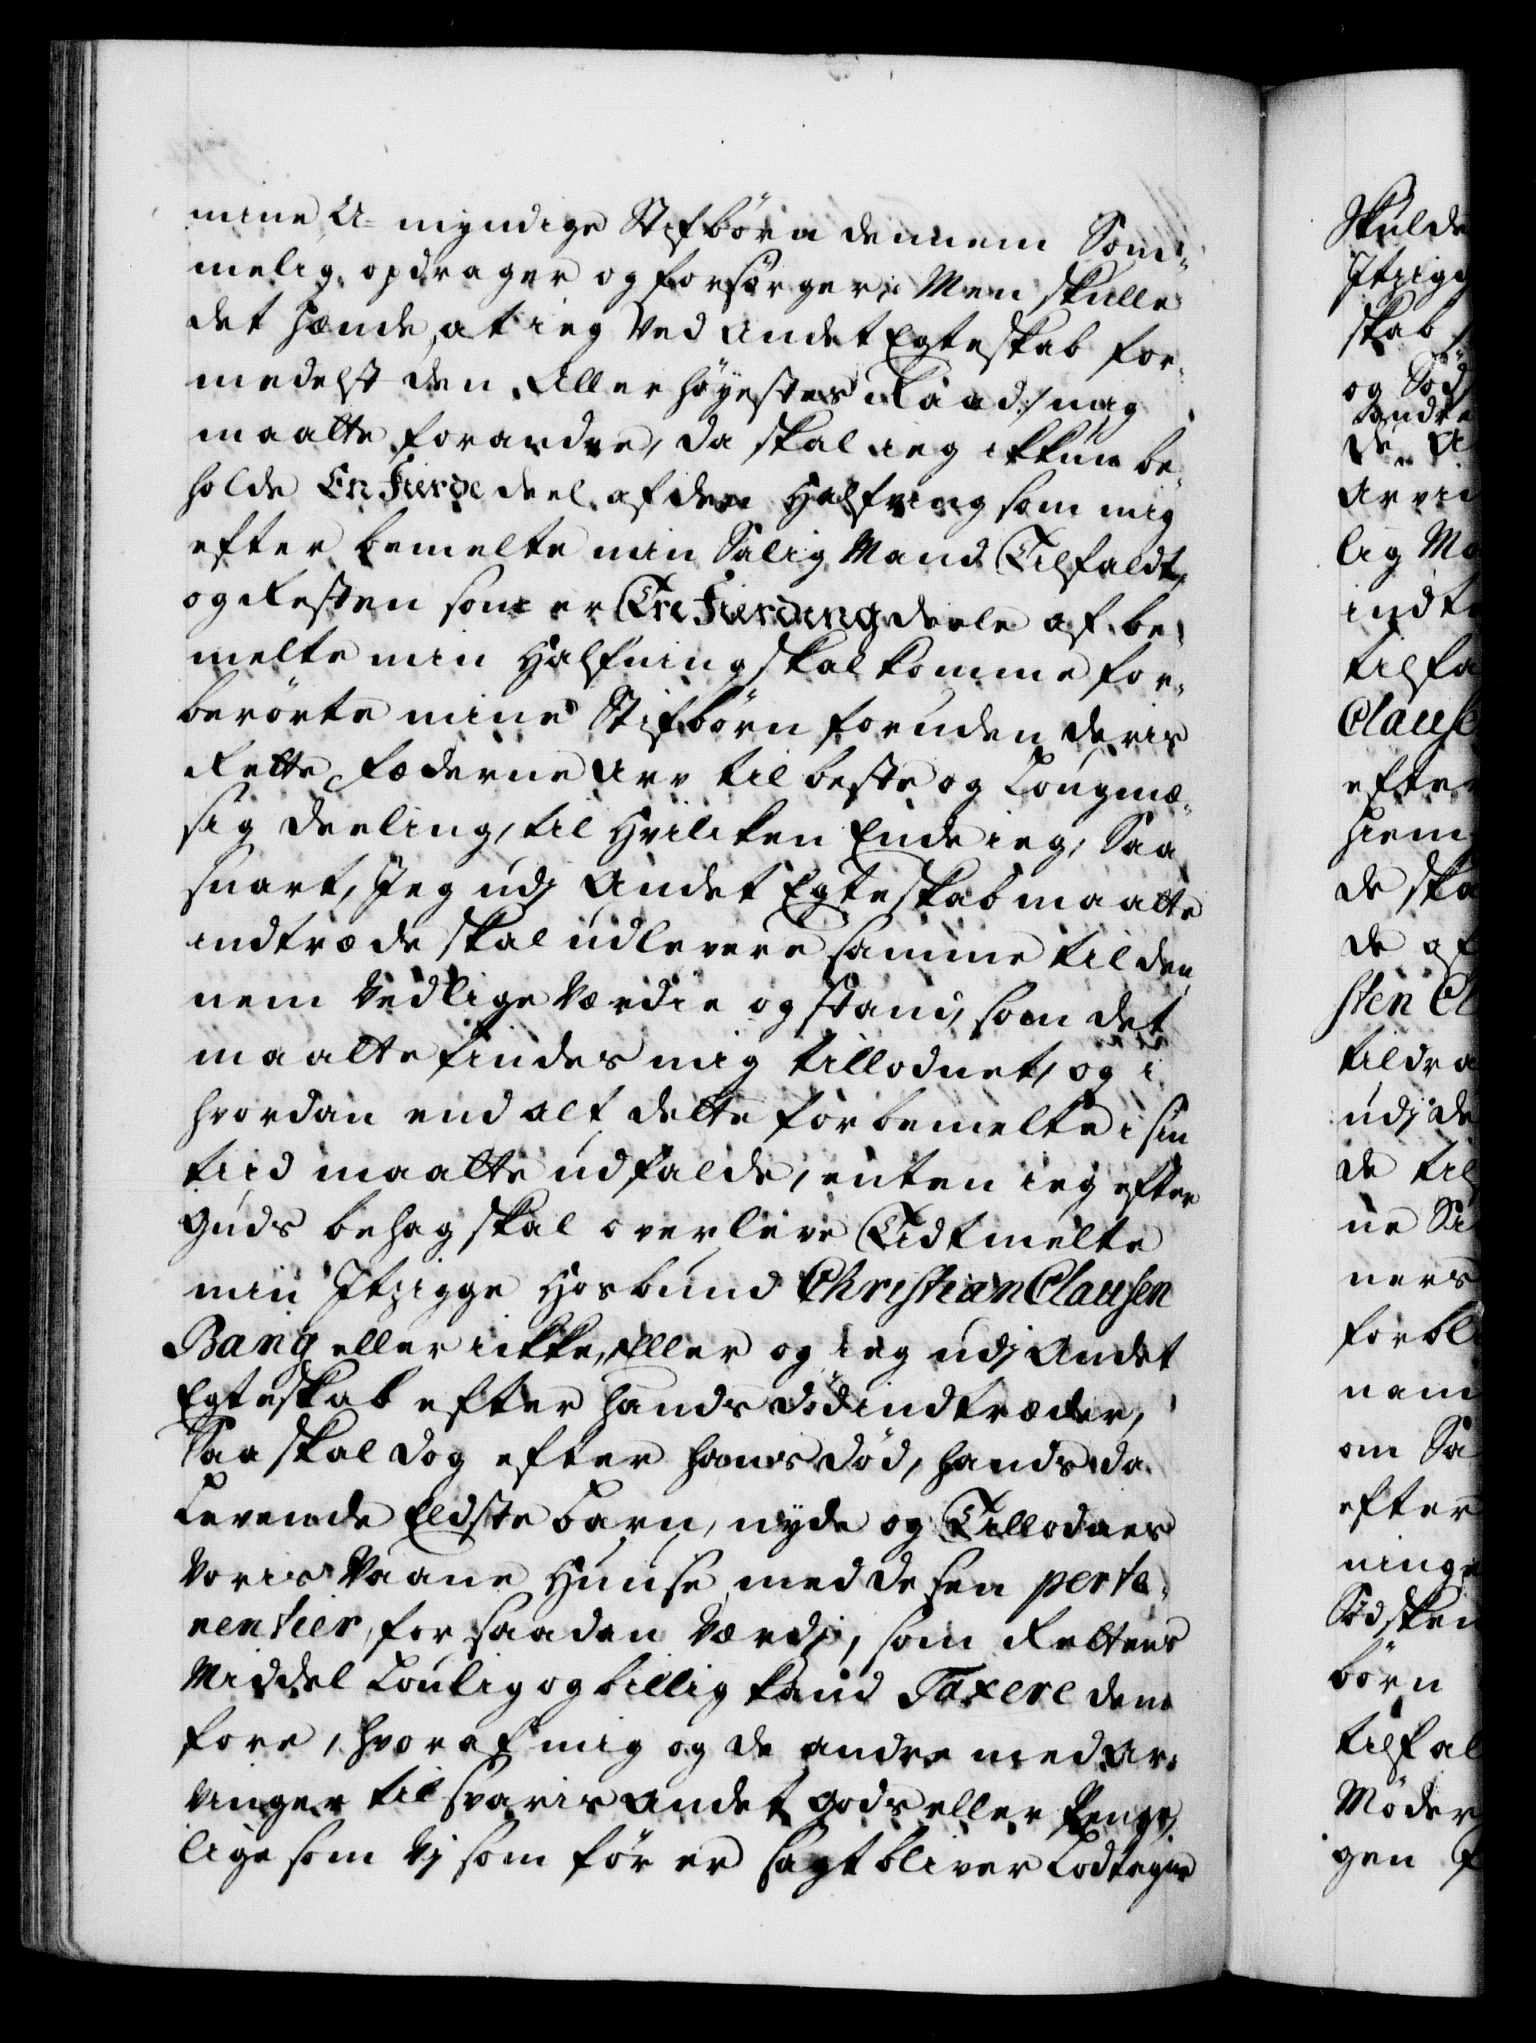 mine U-myndige Stifbörn dennem Som-
melig opdrager og forsörger; Men skulle
det hænde, at ieg Ved Andet Egteskab for-
medelst den Allerhöyestes Raad :/ mig
maatte forandre, da skal ieg ikkun be-
holde En Fierde deel af den Halfning som mig
efter bemelte min Salig Mand Tilfaldt,
og Resten som er Tre Fierding deele af be-
melte min Halfning skal komme for-
berörte mine Stifbörn foruden deris
Rette Fæderne Arv til beste og Lougmæ-
sig deeling, til Hvilken Ende ieg, Saa
snart, Jeg udj Andet Egteskab maatte
indtræde skal udlevere samme til den-
nem Ved lige Værdie og stand, som det
maatte findes mig tillodnet, og i
hvordan end alt dette forbemelte i sin
tiid maatte udfalde, enten ieg efter
Guds behag skal overleve Tidtmelte
min Itzigge Hosbund Christian Clausen
Bang eller ikke, Eller og ieg udj Andet
Egteskab efter hands död indtræder,
Saa skal dog efter hands död, hands da
Levende Eldste Barn, nyde og Tillodnes
Voris Vaane Huuse med desen perte-
nentier, for saadan Værdj, som Rettens
Middel Loulig og billig kand Taxere dem
fore, hvoraf mig og de andre med Ar-
vinger til svaris Andet gods eller Penge,
lige som Vj som för er sagt bliver Lodtegne
Skulde
Itzige
skab
og Söd
Andre
de
Arvin
lig Ma
indtr
tilfa
Clause
efter
hiem
de ska
de af
sten Cl
tildra
udj de
de til
ne Si
ners
forbli
nem
om Sa
efter
ninge
Södsken
börn
tilfal
Möder
gen